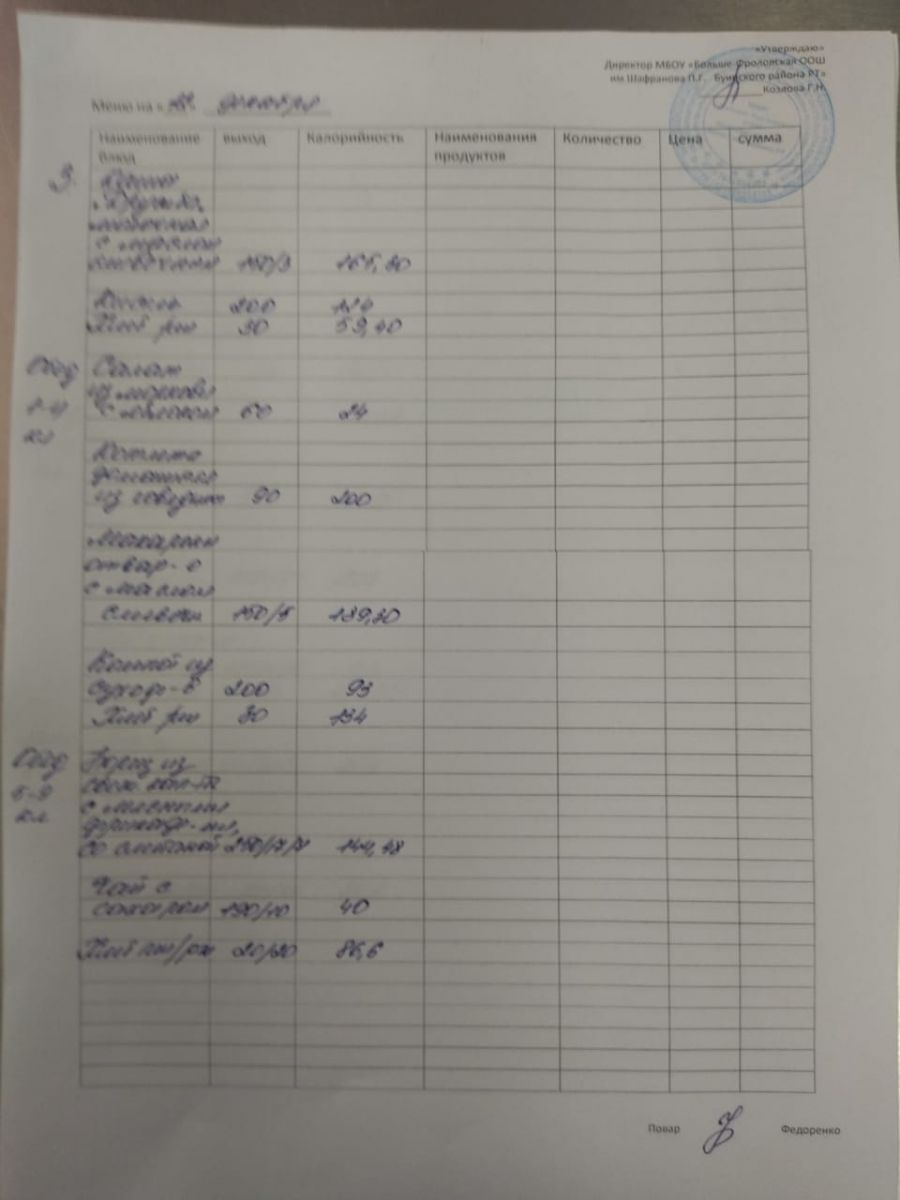 «Утверждаю»
Директор МБОУ «Больше-Фроловская ООШ
им Шафранова П.Г. Буинского района РТ»
Козлова Г.Н.
Меню на « » декабря
Наименование блюд выход Калорийность Наименования продуктов Количество Цена сумма
З. Каша
"Дружба"
молочная
с маслом
сливочным 150/5
200
Хлеб рж 30 59,40
Обед Салат
из моркови
1-4 с яблоком 60 24
кл
Котлета
домашняя
из говядины 90 200
Макароны
отвар-е
с маслом
сливочн 150/5 189,30
Компот из
сухофр-в 200 93
Хлеб рж 30 134
Обед Борщ из
свеж. кап-ты
5-9 с мясными
кл фрикаде-ми,
со сметаной 250/17/7 144,48
Чай с
сахаром 190/10 40
Хлеб пш/рж 20/20 86,6
Повар Федоренко